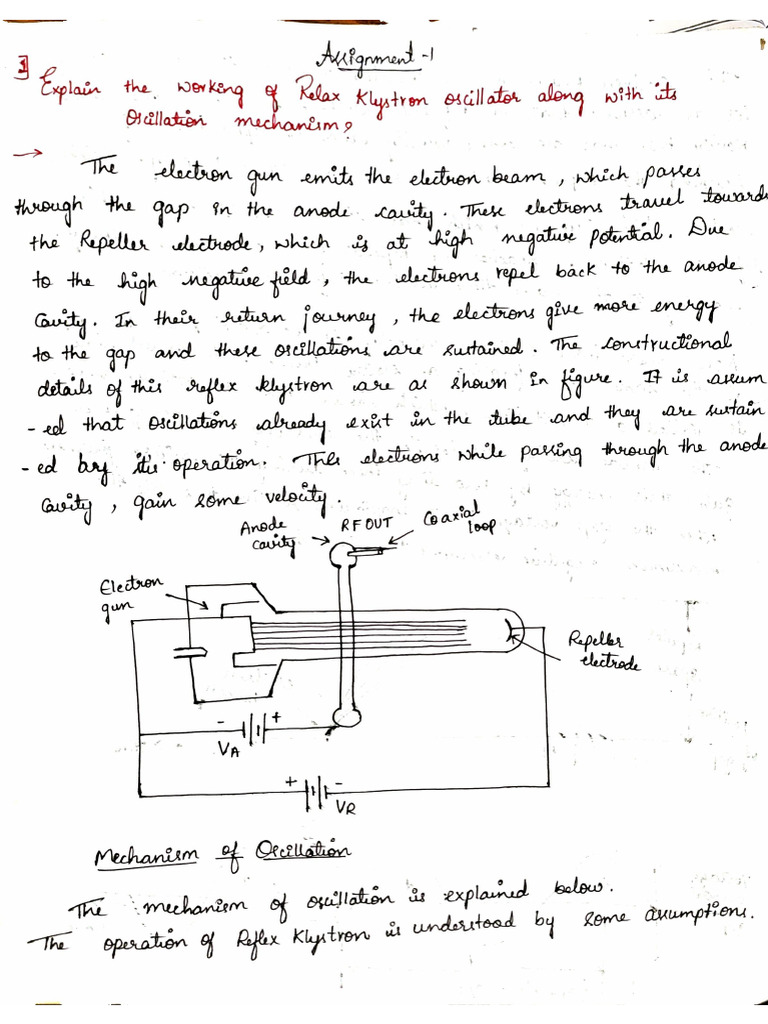 Assignment -1
1] Explain the working of Relax Klystron oscillator along with its
Oscillation mechanism?
→ The electron gun emits the electron beam, which passes
through the gap in the anode cavity. These electrons travel towards
the Repeller electrode, which is at high negative potential. Due
to the high negative field, the electrons repel back to the anode
Cavity. In their return journey, the electrons give more energy
to the gap and these oscillations are sustained. The constructional
details of this reflex klystron are as shown in figure. It is assum
-ed that oscillations already exist in the tube and they are sustain
-ed by its operation. The electrons while passing through the anode
Cavity, gain some velocity.
Anode
cavity
RF OUT
Coaxial
loop
Electron
gun
Repeller
electrode
- +
VA
+ -
VR
Mechanism of Oscillation
The mechanism of oscillation is explained below.
The operation of Reflex Klystron is understood by some assumptions.